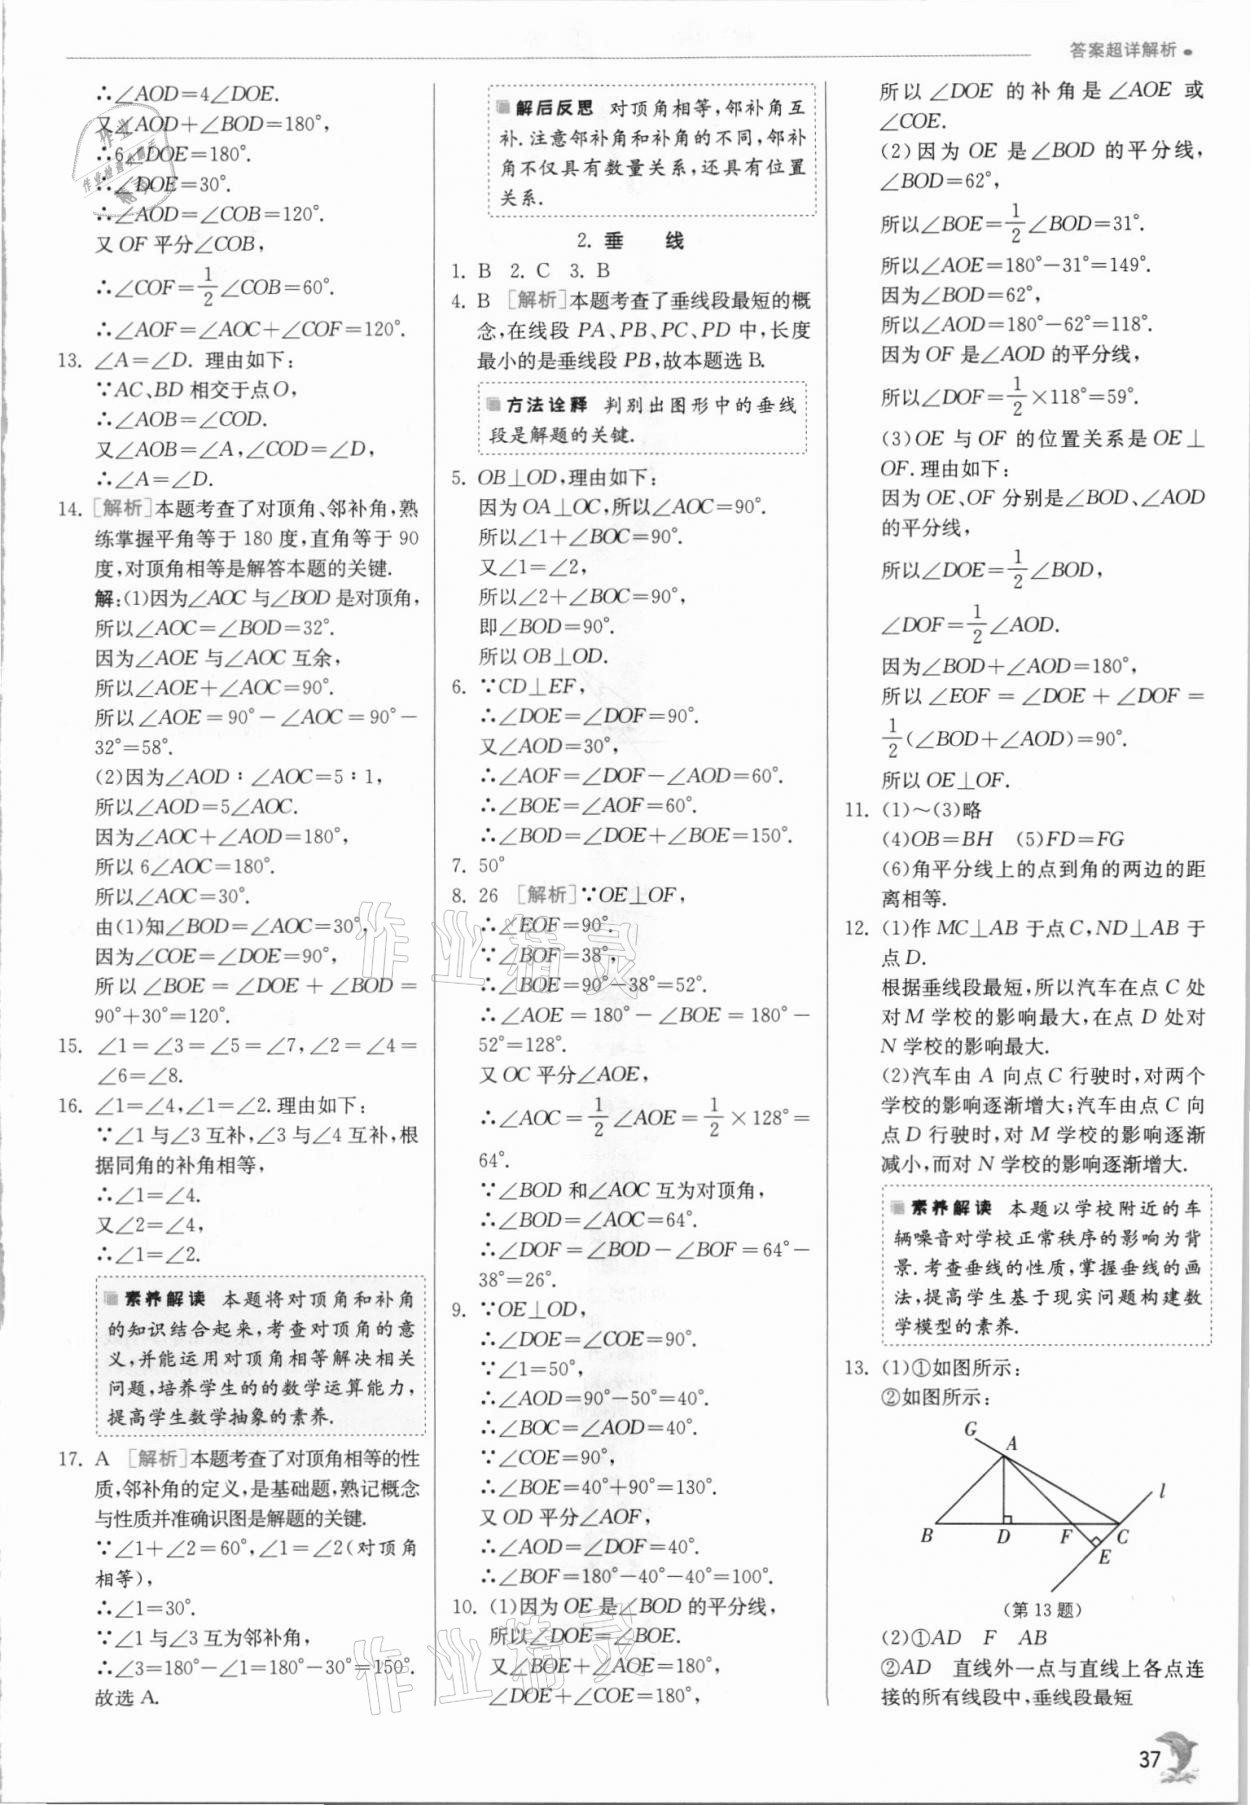 答案超详解析
∴∠AOD=4∠DOE.
又∠AOD+∠BOD=180°,
∴6∠DOE=180°.
∴∠DOE=30°.
∴∠AOD=∠COB=120°.
又 OF 平分∠COB,
∴∠COF=1/2∠COB=60°.
∴∠AOF=∠AOC+∠COF=120°.
13. ∠A=∠D. 理由如下:
∵AC、BD 相交于点O,
∴∠AOB=∠COD.
又∠AOB=∠A,∠COD=∠D,
∴∠A=∠D.
14. [解析]本题考查了对顶角、邻补角,熟
练掌握平角等于 180 度,直角等于 90
度,对顶角相等是解答本题的关键.
解:(1)因为∠AOC 与∠BOD 是对顶角,
所以∠AOC=∠BOD=32°.
因为∠AOE 与∠AOC 互余,
所以∠AOE+∠AOC=90°.
所以∠AOE=90°-∠AOC=90°-
32°=58°.
(2)因为∠AOD∶∠AOC=5∶1,
所以∠AOD=5∠AOC.
因为∠AOC+∠AOD=180°,
所以 6∠AOC=180°.
所以∠AOC=30°.
由(1)知∠BOD=∠AOC=30°,
因为∠COE=∠DOE=90°,
所以∠BOE=∠DOE+∠BOD=
90°+30°=120°.
15. ∠1=∠3=∠5=∠7,∠2=∠4=
∠6=∠8.
16. ∠1=∠4,∠1=∠2.理由如下:
∵∠1与∠3互补,∠3与∠4互补,根
据同角的补角相等,
∴∠1=∠4.
又∠2=∠4,
∴∠1=∠2.
素养解读 本题将对顶角和补角
的知识结合起来,考查对顶角的意
义,并能运用对顶角相等解决相关
问题,培养学生的的数学运算能力,
提高学生数学抽象的素养.
17. A [解析]本题考查了对顶角相等的性
质,邻补角的定义,是基础题,熟记概念
与性质并准确识图是解题的关键.
∵∠1+∠2=60°,∠1=∠2(对顶角
相等),
∴∠1=30°.
∵∠1与∠3互为邻补角,
∴∠3=180°-∠1=180°-30°=150°.
故选 A.
解后反思 对顶角相等,邻补角互
补.注意邻补角和补角的不同,邻补
角不仅具有数量关系,还具有位置
关系.
2. 垂 线
1. B 2. C 3. B
4. B [解析]本题考查了垂线段最短的概
念,在线段 PA、PB、PC、PD 中,长度
最小的是垂线段 PB,故本题选 B.
方法诠释 判别出图形中的垂线
段是解题的关键.
5. OB⊥OD,理由如下:
因为 OA⊥OC,所以∠AOC=90°.
所以∠1+∠BOC=90°.
又∠1=∠2,
所以∠2+∠BOC=90°,
即∠BOD=90°.
所以 OB⊥OD.
6. ∵CD⊥EF,
∴∠DOE=∠DOF=90°.
又∠AOD=30°,
∴∠AOF=∠DOF-∠AOD=60°.
∴∠BOE=∠AOF=60°.
∴∠BOD=∠DOE+∠BOE=150°.
7. 50°
8. 26 [解析]∵OE⊥OF,
∴∠EOF=90°.
∵∠BOF=38°,
∴∠BOE=90°-38°=52°.
∴∠AOE=180°-∠BOE=180°-
52°=128°.
又 OC 平分∠AOE,
∴∠AOC=1/2∠AOE=1/2×128°=
64°.
∵∠BOD 和∠AOC 互为对顶角,
∴∠BOD=∠AOC=64°.
∴∠DOF=∠BOD-∠BOF=64°-
38°=26°.
9. ∵OE⊥OD,
∴∠DOE=∠COE=90°.
∵∠1=50°,
∴∠AOD=90°-50°=40°.
∴∠BOC=∠AOD=40°.
∵∠COE=90°,
∴∠BOE=40°+90°=130°.
又 OD 平分∠AOF,
∴∠AOD=∠DOF=40°.
∴∠BOF=180°-40°-40°=100°.
10. (1)因为 OE 是∠BOD 的平分线,
所以∠DOE=∠BOE.
又∠BOE+∠AOE=180°,
∠DOE+∠COE=180°,
所以∠DOE 的补角是∠AOE 或
∠COE.
(2)因为 OE 是∠BOD 的平分线,
∠BOD=62°,
所以∠BOE=1/2∠BOD=31°.
所以∠AOE=180°-31°=149°.
因为∠BOD=62°,
所以∠AOD=180°-62°=118°.
因为 OF 是∠AOD 的平分线,
所以∠DOF=1/2×118°=59°.
(3)OE 与 OF 的位置关系是 OE⊥
OF.理由如下:
因为 OE、OF 分别是∠BOD、∠AOD
的平分线,
所以∠DOE=1/2∠BOD,
∠DOF=1/2∠AOD.
因为∠BOD+∠AOD=180°,
所以∠EOF=∠DOE+∠DOF=
1/2(∠BOD+∠AOD)=90°.
所以 OE⊥OF.
11. (1)~(3)略
(4)OB=BH (5)FD=FG
(6)角平分线上的点到角的两边的距
离相等.
12. (1)作 MC⊥AB 于点 C,ND⊥AB 于
点 D.
根据垂线段最短,所以汽车在点 C 处
对 M 学校的影响最大,在点 D 处对
N 学校的影响最大.
(2)汽车由 A 向点 C 行驶时,对两个
学校的影响逐渐增大;汽车由点 C 向
点 D 行驶时,对 M 学校的影响逐渐
减小,而对 N 学校的影响逐渐增大.
素养解读 本题以学校附近的车
辆噪音对学校正常秩序的影响为背
景.考查垂线的性质,掌握垂线的画
法,提高学生基于现实问题构建数
学模型的素养.
13. (1)①如图所示:
②如图所示:
G
A
l
B
D
F
C
E
(第 13 题)
(2)①AD F AB
②AD 直线外一点与直线上各点连
接的所有线段中,垂线段最短
37
作业精灵
作业精灵